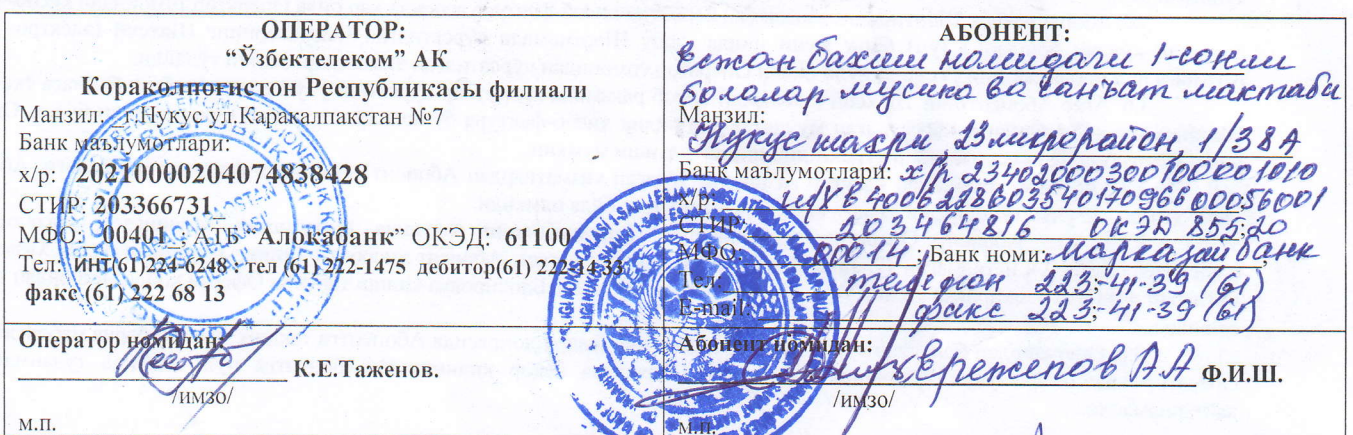 ОПЕРАТОР:
“Ўзбектелеком” АК
Корақолпоғистон Республикасы филиали
Манзил: _ г.Нукус ул.Каракалпакстан №7
Банк маълумотлари:
х/р: 20210000204074838428
СТИР: 203366731_
МФО:_ 00401_; АТБ “Алокабанк” ОКЭД: 61100
Тел: ИНТ(61)224-6248 : тел (61) 222-1475 дебитор(61) 222-14 33
факс (61) 222 68 13
Оператор номидан:
К.Е.Таженов.
/имзо/
м.п.
АБОНЕНТ:
Ешжан бахши номидаги 1-сонли
болалар мусика ва санъат мактаби
Манзил:
Нукус шахри, 23 микрорайон, 1/38А
Банк маълумотлари: х/р 23402000300100001010
х/р: ш/ХВ 400622860354017096600056001
СТИР: 203464816 ОКЭД 855:20
МФО: 00014 ; Банк номи: Марказий банк
Тел. телефон 223-41-39 (61)
E-mail: факс 223-41-39 (61)
Абонент номидан:
Ережепов А А Ф.И.Ш.
/имзо/
м.п.